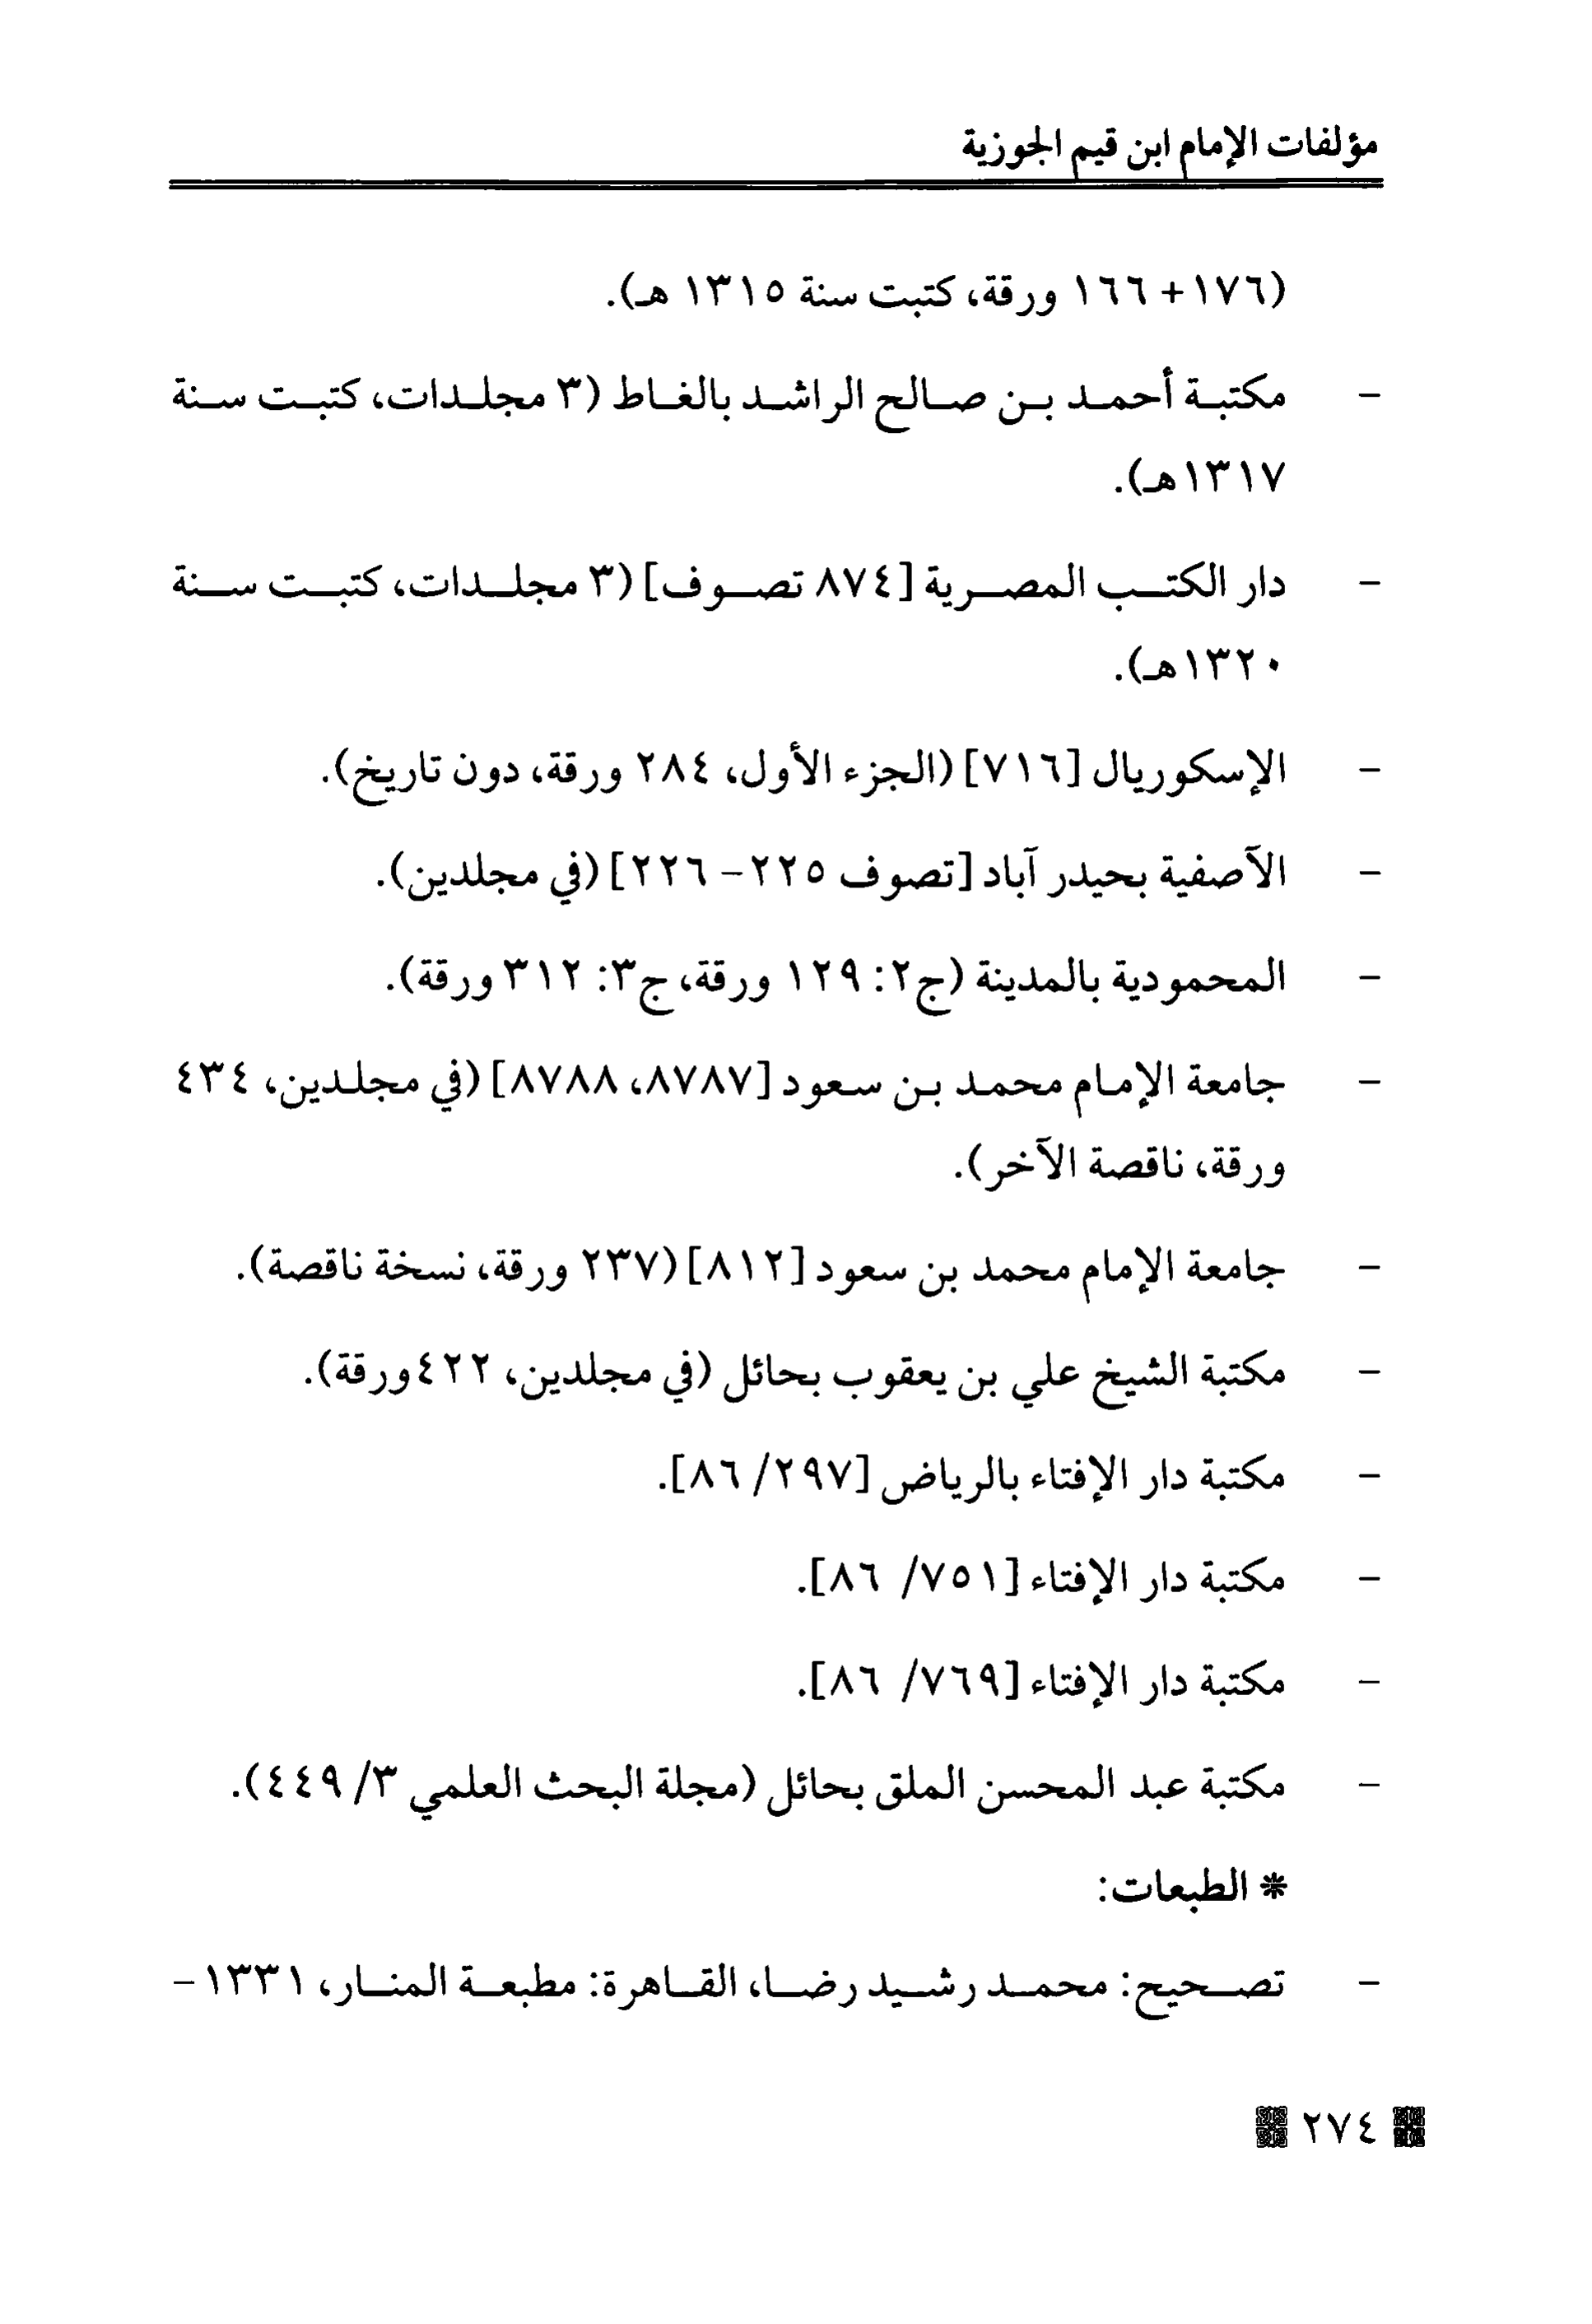 مؤلفات الإمام ابن قيم الجوزية
(١٧٦+ ١٦٦ ورقة، كتبت سنة ١٣١٥ هـ).
- مكتبة أحمد بن صالح الراشد بالغاط (٣ مجلدات، كتبت سنة
١٣١٧هـ).
- دار الكتب المصرية [٨٧٤ تصوف] (٣ مجلدات، كتبت سنة
١٣٢٠هـ).
- الإسكوريال [٧١٦] (الجزء الأول، ٢٨٤ ورقة، دون تاريخ).
- الآصفية بحيدر آباد [تصوف ٢٢٥- ٢٢٦] (في مجلدين).
- المحمودية بالمدينة (ج٢: ١٢٩ ورقة، ج٣: ٣١٢ ورقة).
- جامعة الإمام محمد بن سعود [٨٧٨٧، ٨٧٨٨] (في مجلدين، ٤٣٤
ورقة، ناقصة الآخر).
- جامعة الإمام محمد بن سعود [٨١٢] (٢٣٧ ورقة، نسخة ناقصة).
- مكتبة الشيخ علي بن يعقوب بحائل (في مجلدين، ٤٢٢ورقة).
- مكتبة دار الإفتاء بالرياض [٢٩٧/ ٨٦].
- مكتبة دار الإفتاء [٧٥١/ ٨٦].
- مكتبة دار الإفتاء [٧٦٩/ ٨٦].
- مكتبة عبد المحسن الملق بحائل (مجلة البحث العلمي ٣/ ٤٤٩).
* الطبعات:
- تصحيح: محمد رشيد رضا، القاهرة: مطبعة المنار، ١٣٣١-
٢٧٤